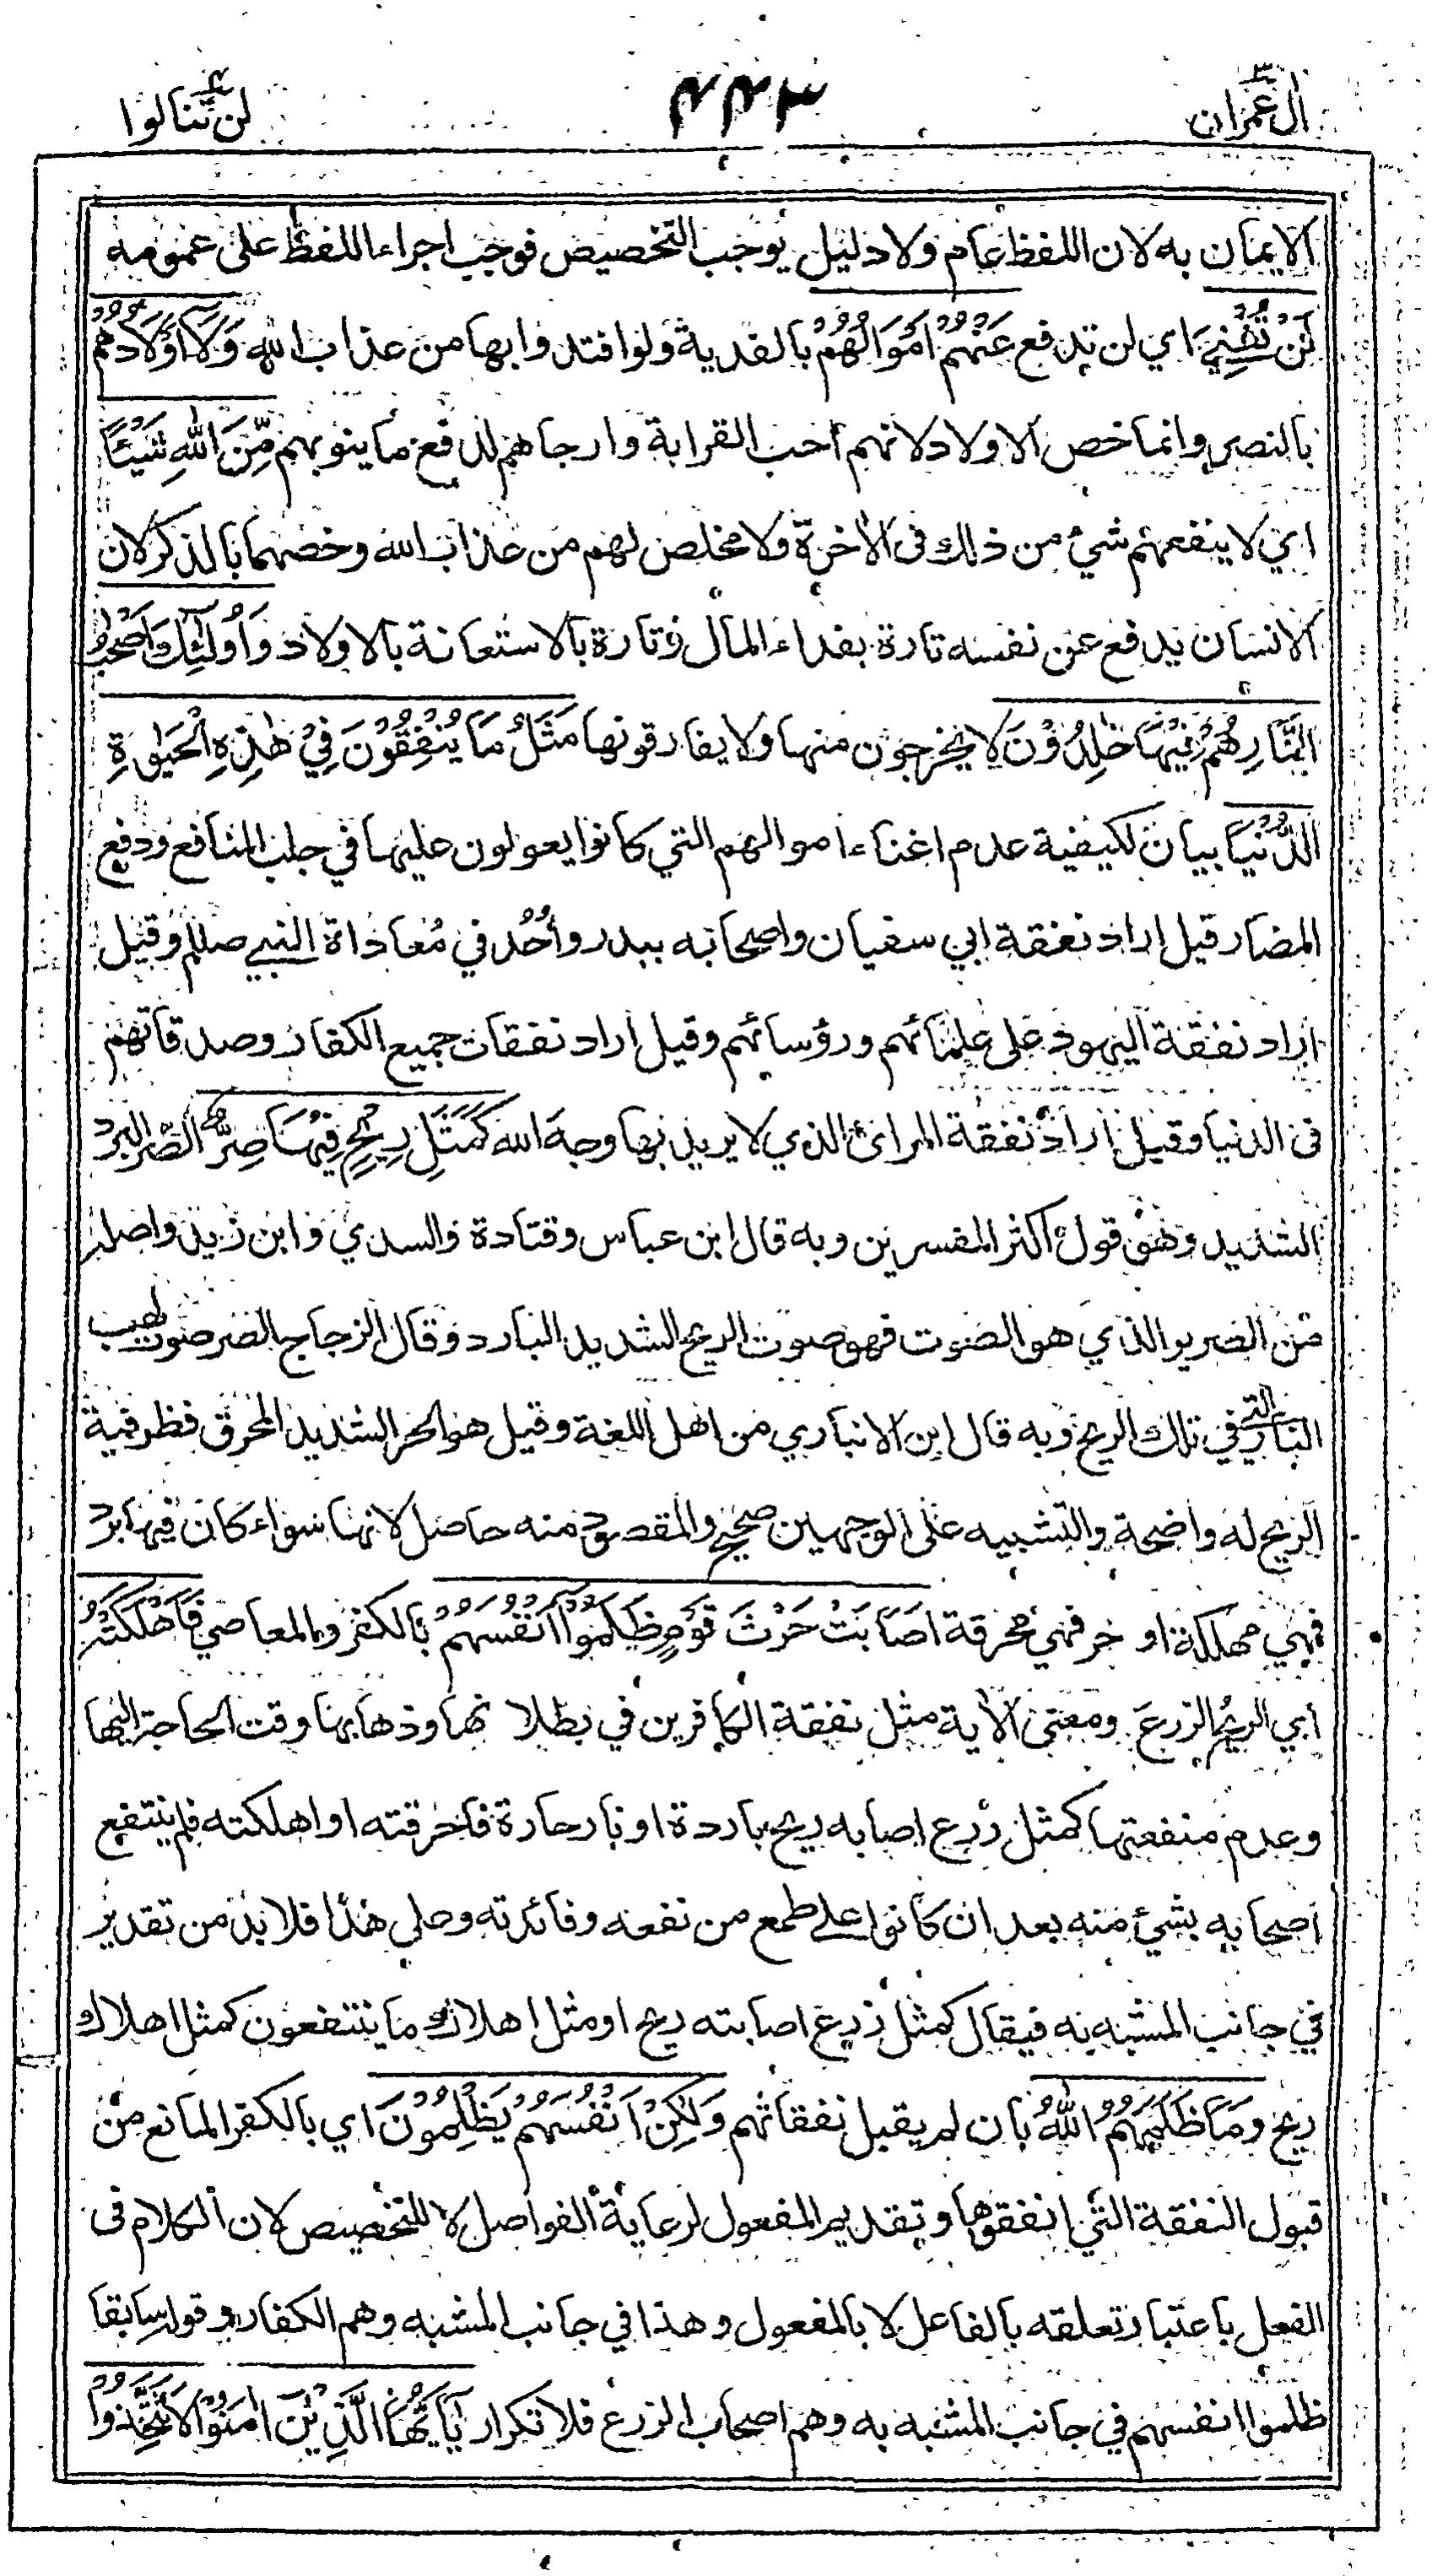 اٰل عمران ٣
٤٤٣
لن تنالوا ٤
الايمان به لان اللفظ عام ولا دليل يوجب التخصيص فوجب اجراء اللفظ على عمومه
لَنْ تُغْنِيَ اي لن تدفع عَنْهُمْ اَمْوَالُهُمْ بالفدية ولو افتدوا بها من عذاب الله وَلَآ اَوْلَادُهُمْ
بالنصر وانما خص الاولاد لانهم احب القرابة وارجاهم لدفع ما ينوبهم مِّنَ اللّٰهِ شَيْئًا
اي لا ينفعهم شيئ من ذلك فى الاٰخرة ولا مخلص لهم من عذاب الله وخصهما بالذكر لان
الانسان يدفع عن نفسه تارة بفداء المال وتارة بالاستعانة بالاولاد وَاُولٰٓئِكَ اَصْحٰبُ
النَّارِ هُمْ فِيْهَا خٰلِدُوْنَ لا يخرجون منها ولا يفارقونها مَثَلُ مَا يُنْفِقُوْنَ فِيْ هٰذِهِ الْحَيٰوةِ
الدُّنْيَا بيان لكيفية عدم اغناء اموالهم التي كانوا يعولون عليها في جلب المنافع ودفع
المضار قيل اراد نفقة ابي سفيان واصحابه ببدر وأُحُد في مُعاداة النبي صللم وقيل
اراد نفقة اليهود على علمائهم ورؤسائهم وقيل اراد نفقات جميع الكفار وصدقاتهم
فى الدنيا وقيل اراد نفقة المرائ الذي لا يريد بها وجه الله كَمَثَلِ رِيْحٍ فِيْهَا صِرٌّ الصر البرد
الشديد وهو قول اكثر المفسرين وبه قال ابن عباس وقتادة والسدي وابن زيد واصله
من الصرير الذي هو الصوت فهو صوت الريح الشديد البارد وقال الزجاج الصر صوت لهب
النار التي في تلك الريح وبه قال ابن الانباري من اهل اللغة وقيل هو الحر الشديد المحرق فظرفية
الريح له واضحة والتشبيه على الوجهين صحيح والمقصود منه حاصل لانها سواء كان فيها برد
فهي مهلكة او حر فهي محرقة اَصَابَتْ حَرْثَ قَوْمٍ ظَلَمُوْٓا اَنْفُسَهُمْ بالكفر والمعاصي فَاَهْلَكَتْهُ
أي الريحُ الزرعَ ومعنى الاٰية مثل نفقة الكافرين في بطلانها وذهابها وقت الحاجة اليها
وعدم منفعتها كمثل زرع اصابه ريح باردة او نار حارة فاحرقته او اهلكته فلم ينتفع
اصحابه بشيئ منه بعد ان كانوا على طمع من نفعه وفائدته وعلى هذا فلا بد من تقدير
في جانب المشبه به فيقال كمثل زرع اصابته ريح او مثل اهلاك ما ينتفعون كمثل اهلاك
ريح وَمَا ظَلَمَهُمُ اللّٰهُ بان لم يقبل نفقاتهم وَلٰكِنْ اَنْفُسَهُمْ يَظْلِمُوْنَ اي بالكفر المانع من
قبول النفقة التي انفقوها وتقديم المفعول لرعاية الفواصل لا للتخصيص لان الكلام فى
الفعل باعتبار تعلقه بالفاعل لا بالمفعول وهذا في جانب المشبه وهم الكفار وقوله سابقا
ظلموا انفسهم في جانب المشبه به وهم اصحاب الزرع فلا تكرار يٰٓاَيُّهَا الَّذِيْنَ اٰمَنُوْا لَا تَتَّخِذُوْا